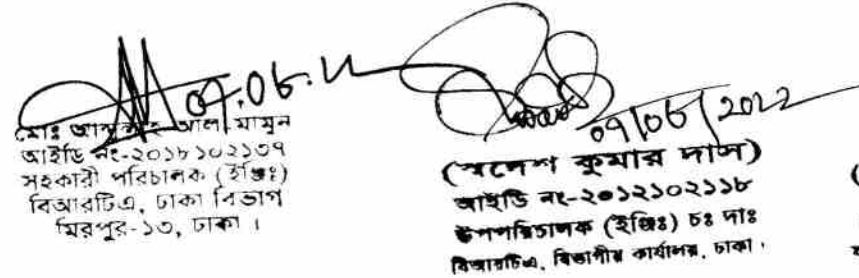 ০৭.০৮.২২
মোঃ আব্দুল্লাহ আল মামুন
আইডি নং-২০১৮১০২১৩৭
সহকারী পরিচালক (ইঞ্জিঃ)
বিআরটিএ, ঢাকা বিভাগ
মিরপুর-১৩, ঢাকা ।
০৭/০৮/2022
(স্বদেশ কুমার দাস)
আইডি নং-২০১২১০২১১৮
উপপরিচালক (ইঞ্জিঃ) চঃ দাঃ
বিআরটিএ, বিভাগীয় কার্যালয়, ঢাকা ।